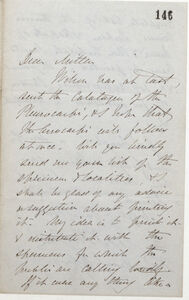 146
Dear Mitten
Wilson has at last
sent the Catalogue of the
Pleurocarpi, & I hope that
the Acrocarpi will follow
at once. Will you kindly
send me your list of the
specimens & localities & I
shall be glad of any advice
or suggestion about printing
it. My idea is to print it
& distribute it with the
specimens for which the
public are calling loudly
If it were any thing else